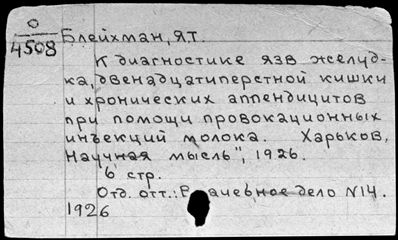 О
4508
Блейхман, Я.Т.
К диагностике язв желуд-
ка, двенадцатиперстной кишки
и хронических аппендицитов
при помощи провокационных
инъекций молока. Харьков,
Научная мысль", 1926.
6 стр.
Отд. отт.: Врачебное дело N14.
1926